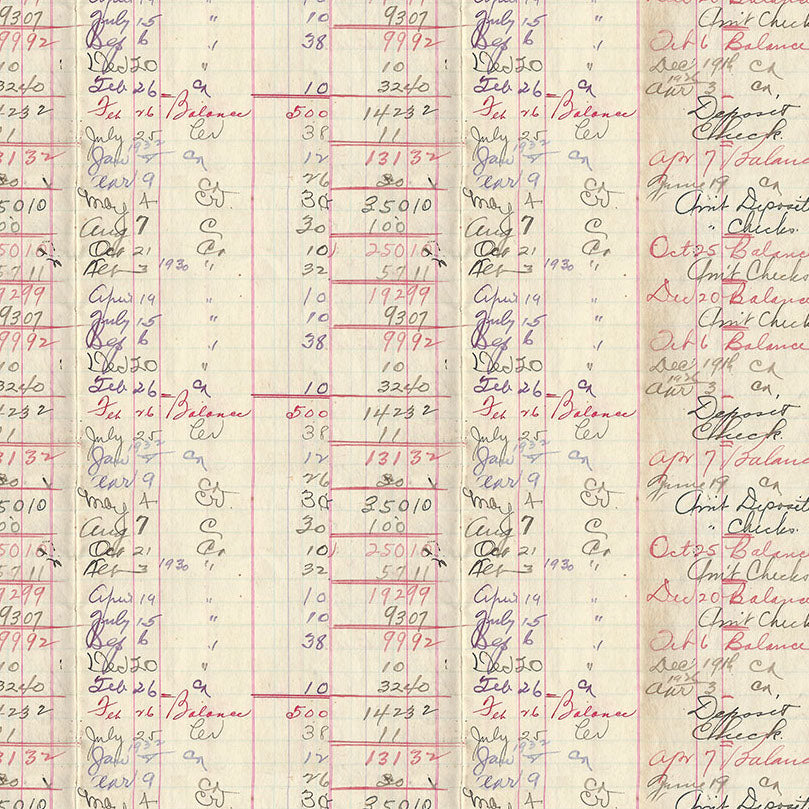 9307 July 15 " 10 9307 July 15 " Am't Check
9992 Sep 6 " 38 9992 Sep 6 " Oct 6 Balance
10 Dec 20 " 10 Dec 20 " Dec 19th Cr
3240 Feb 26 Cr 10 3240 Feb 26 Cr 1936 Apr 3 Cr,
4232 Feb 26 Balance 500 14232 Feb 26 Balance Deposit
11 July 25 Cr 38 11 July 25 Cr Check
3132 Jan 1932 Cr 12 13132 Jan 1932 Cr Apr 7 Balance
30 9 26 30 9 June 19 Cr
35010 May 4 Cr 38 35010 May 4 Cr Am't Deposit
00 Aug 7 C 30 100 Aug 7 C " Checks
5010 Oct 21 Cr 10 25010 Oct 21 Cr Oct 25 Balance
5711 Feb 3 1930 " 32 5711 Feb 3 1930 " Am't Checks
9299 April 19 " 10 19299 April 19 " Dec 20 Balance
9307 July 15 " 10 9307 July 15 " Am't Check
9992 Sep 6 " 38 9992 Sep 6 " Oct 6 Balance
10 Dec 20 " 10 Dec 20 " Dec 19th Cr
3240 Feb 26 Cr 10 3240 Feb 26 Cr 1936 Apr 3 Cr,
4232 Feb 26 Balance 500 14232 Feb 26 Balance Deposit
11 July 25 Cr 38 11 July 25 Cr Check
3132 Jan 1932 Cr 12 13132 Jan 1932 Cr Apr 7 Balance
30 9 26 30 9 June 19 Cr
35010 May 4 Cr 38 35010 May 4 Cr Am't Deposit
00 Aug 7 C 30 100 Aug 7 C " Checks
5010 Oct 21 Cr 10 25010 Oct 21 Cr Oct 25 Balance
5711 Feb 3 1930 " 32 5711 Feb 3 1930 " Am't Checks
9299 April 19 " 10 19299 April 19 " Dec 20 Balance
9307 July 15 " 10 9307 July 15 " Am't Check
9992 Sep 6 " 38 9992 Sep 6 " Oct 6 Balance
10 Dec 20 " 10 Dec 20 " Dec 19th Cr
3240 Feb 26 Cr 10 3240 Feb 26 Cr 1936 Apr 3 Cr,
4232 Feb 26 Balance 500 14232 Feb 26 Balance Deposit
11 July 25 Cr 38 11 July 25 Cr Check
3132 Jan 1932 Cr 12 13132 Jan 1932 Cr Apr 7 Balance
30 9 26 30 9 June 19 Cr
35010 May 4 Cr 38 35010 May 4 Cr Am't Deposit